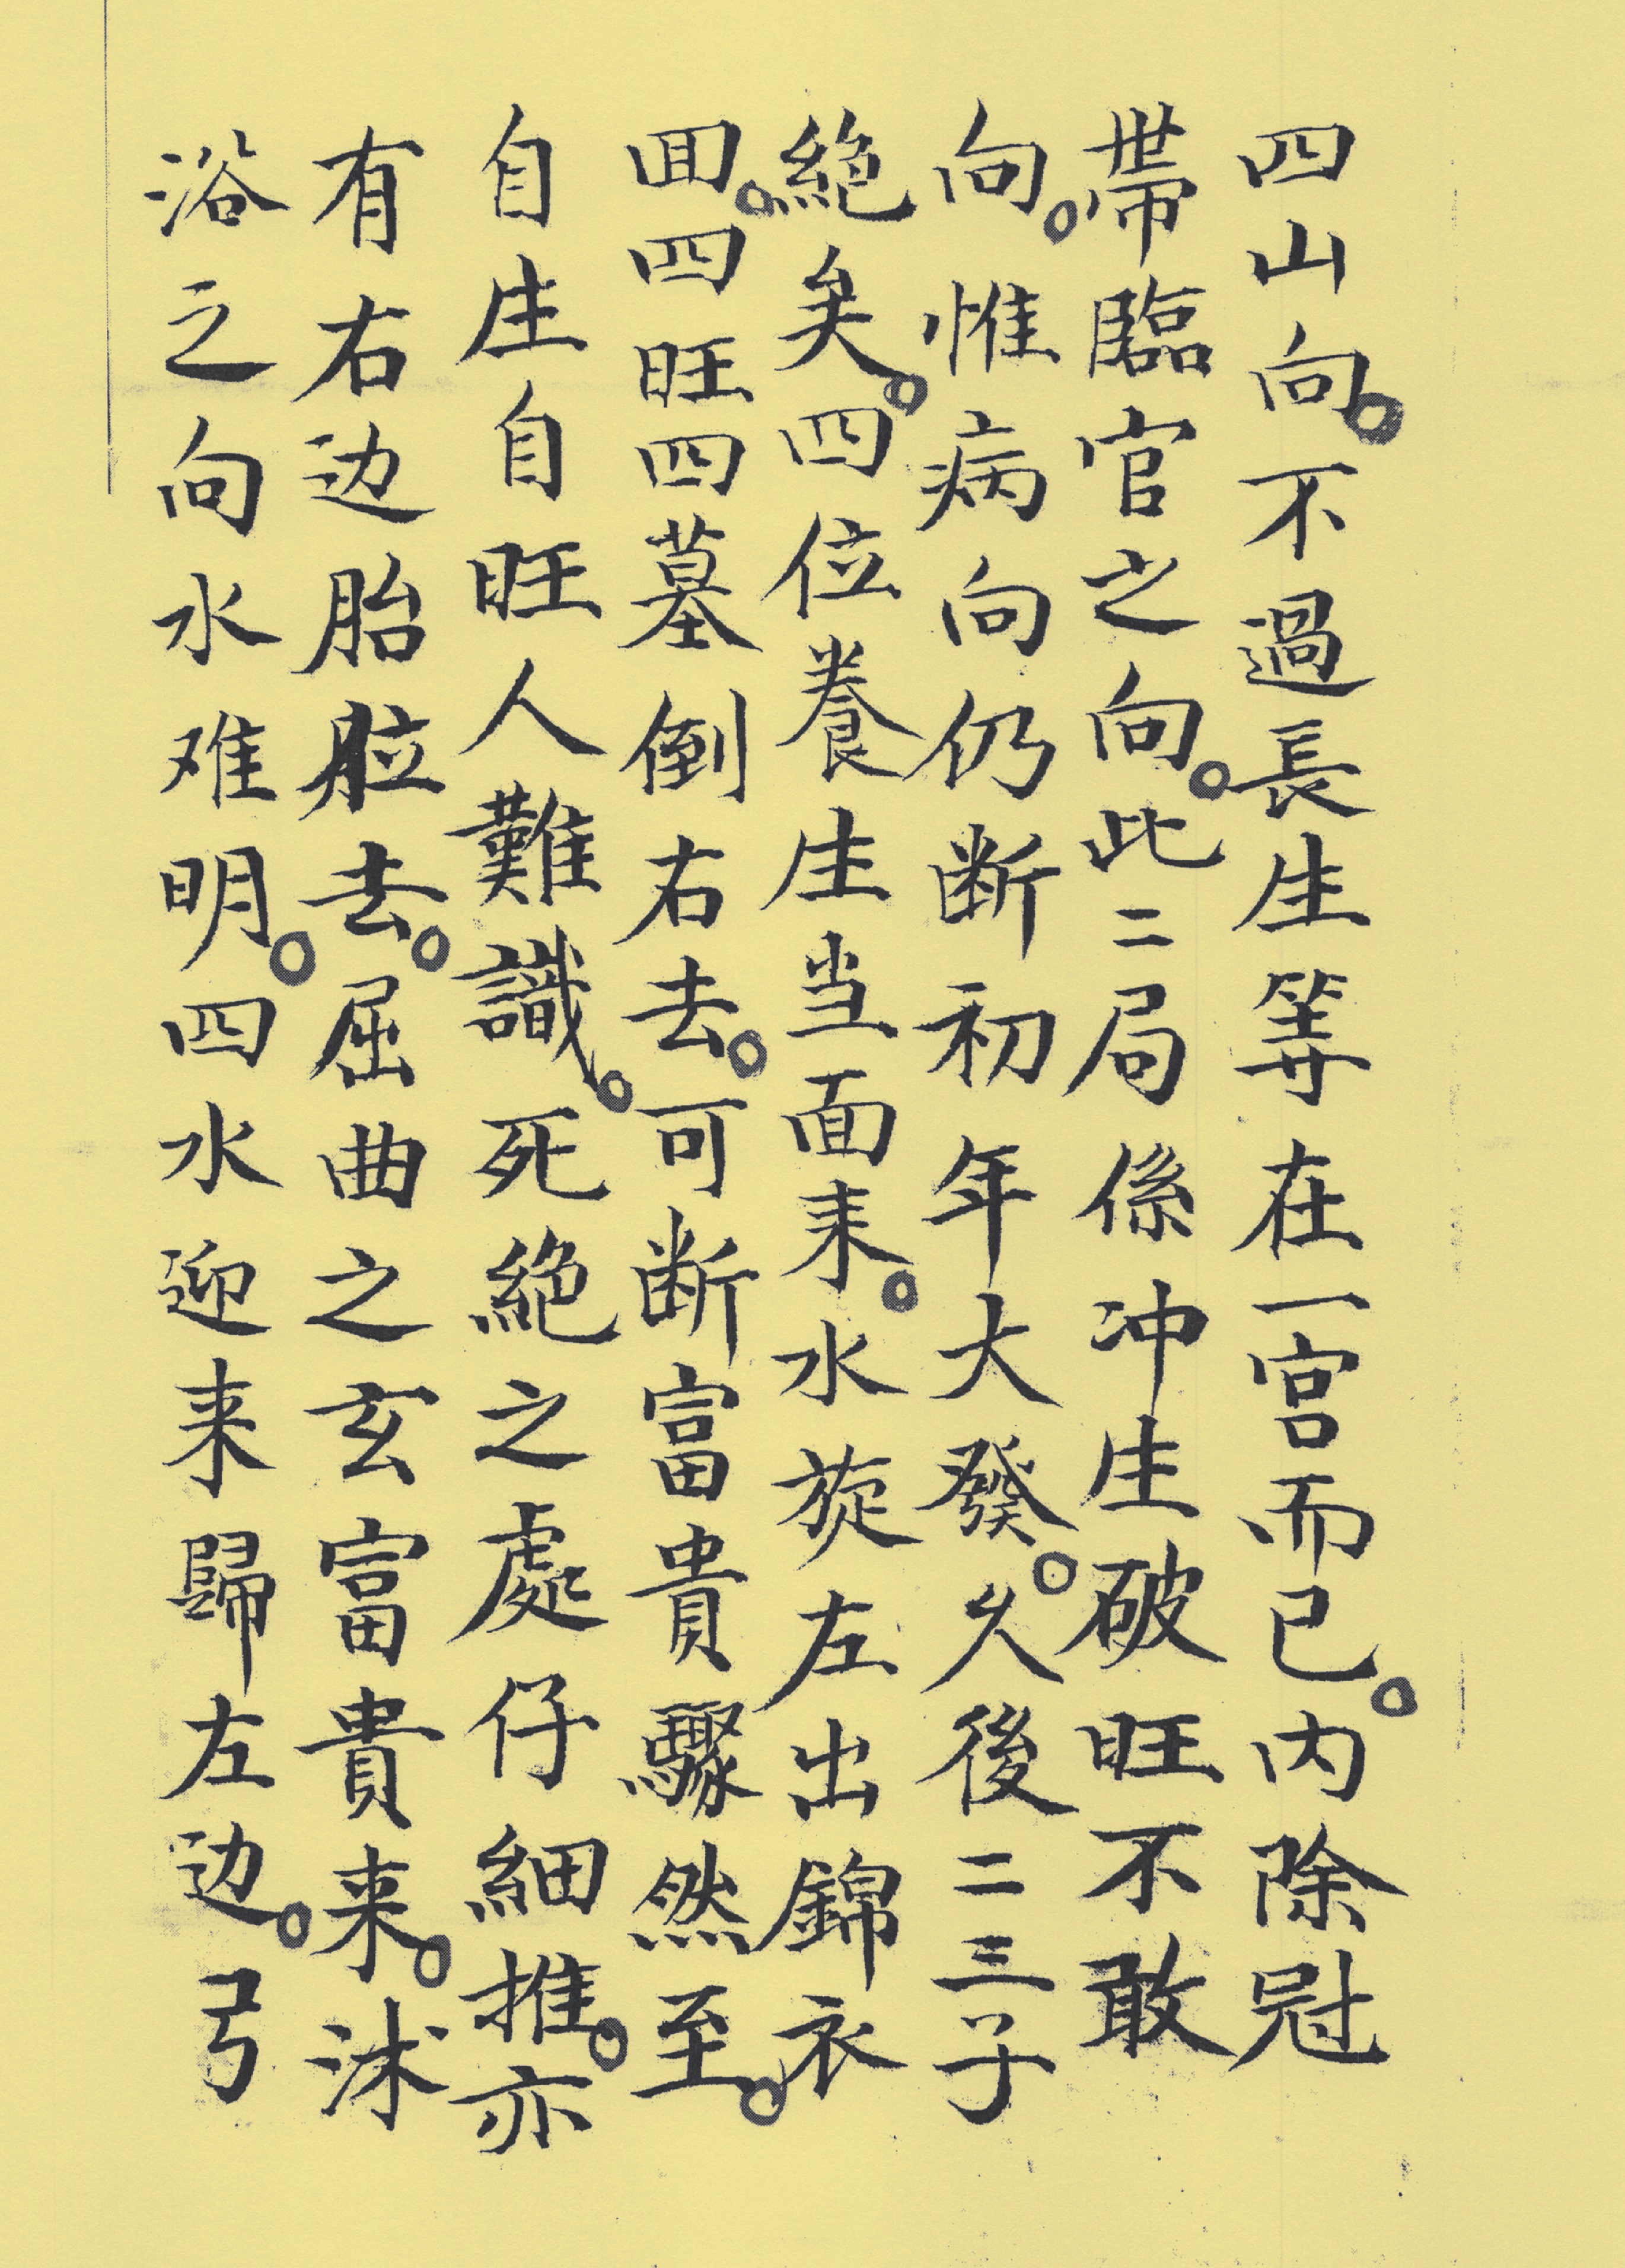 四山向。不過長生等在一宮而已。内除冠
帶臨官之向。此二局係冲生破旺不敢
向。惟病向仍断初年大發。久後二三子
絶矣。四位養生当面来。水旋左出錦衣
囬。四旺四墓倒右去。可断富貴驟然至。
自生自旺人難識。死絶之處仔細推。亦
有右边胎去。屈曲之玄富貴来。沐
浴之向水难明。四水迎来歸左边。弓